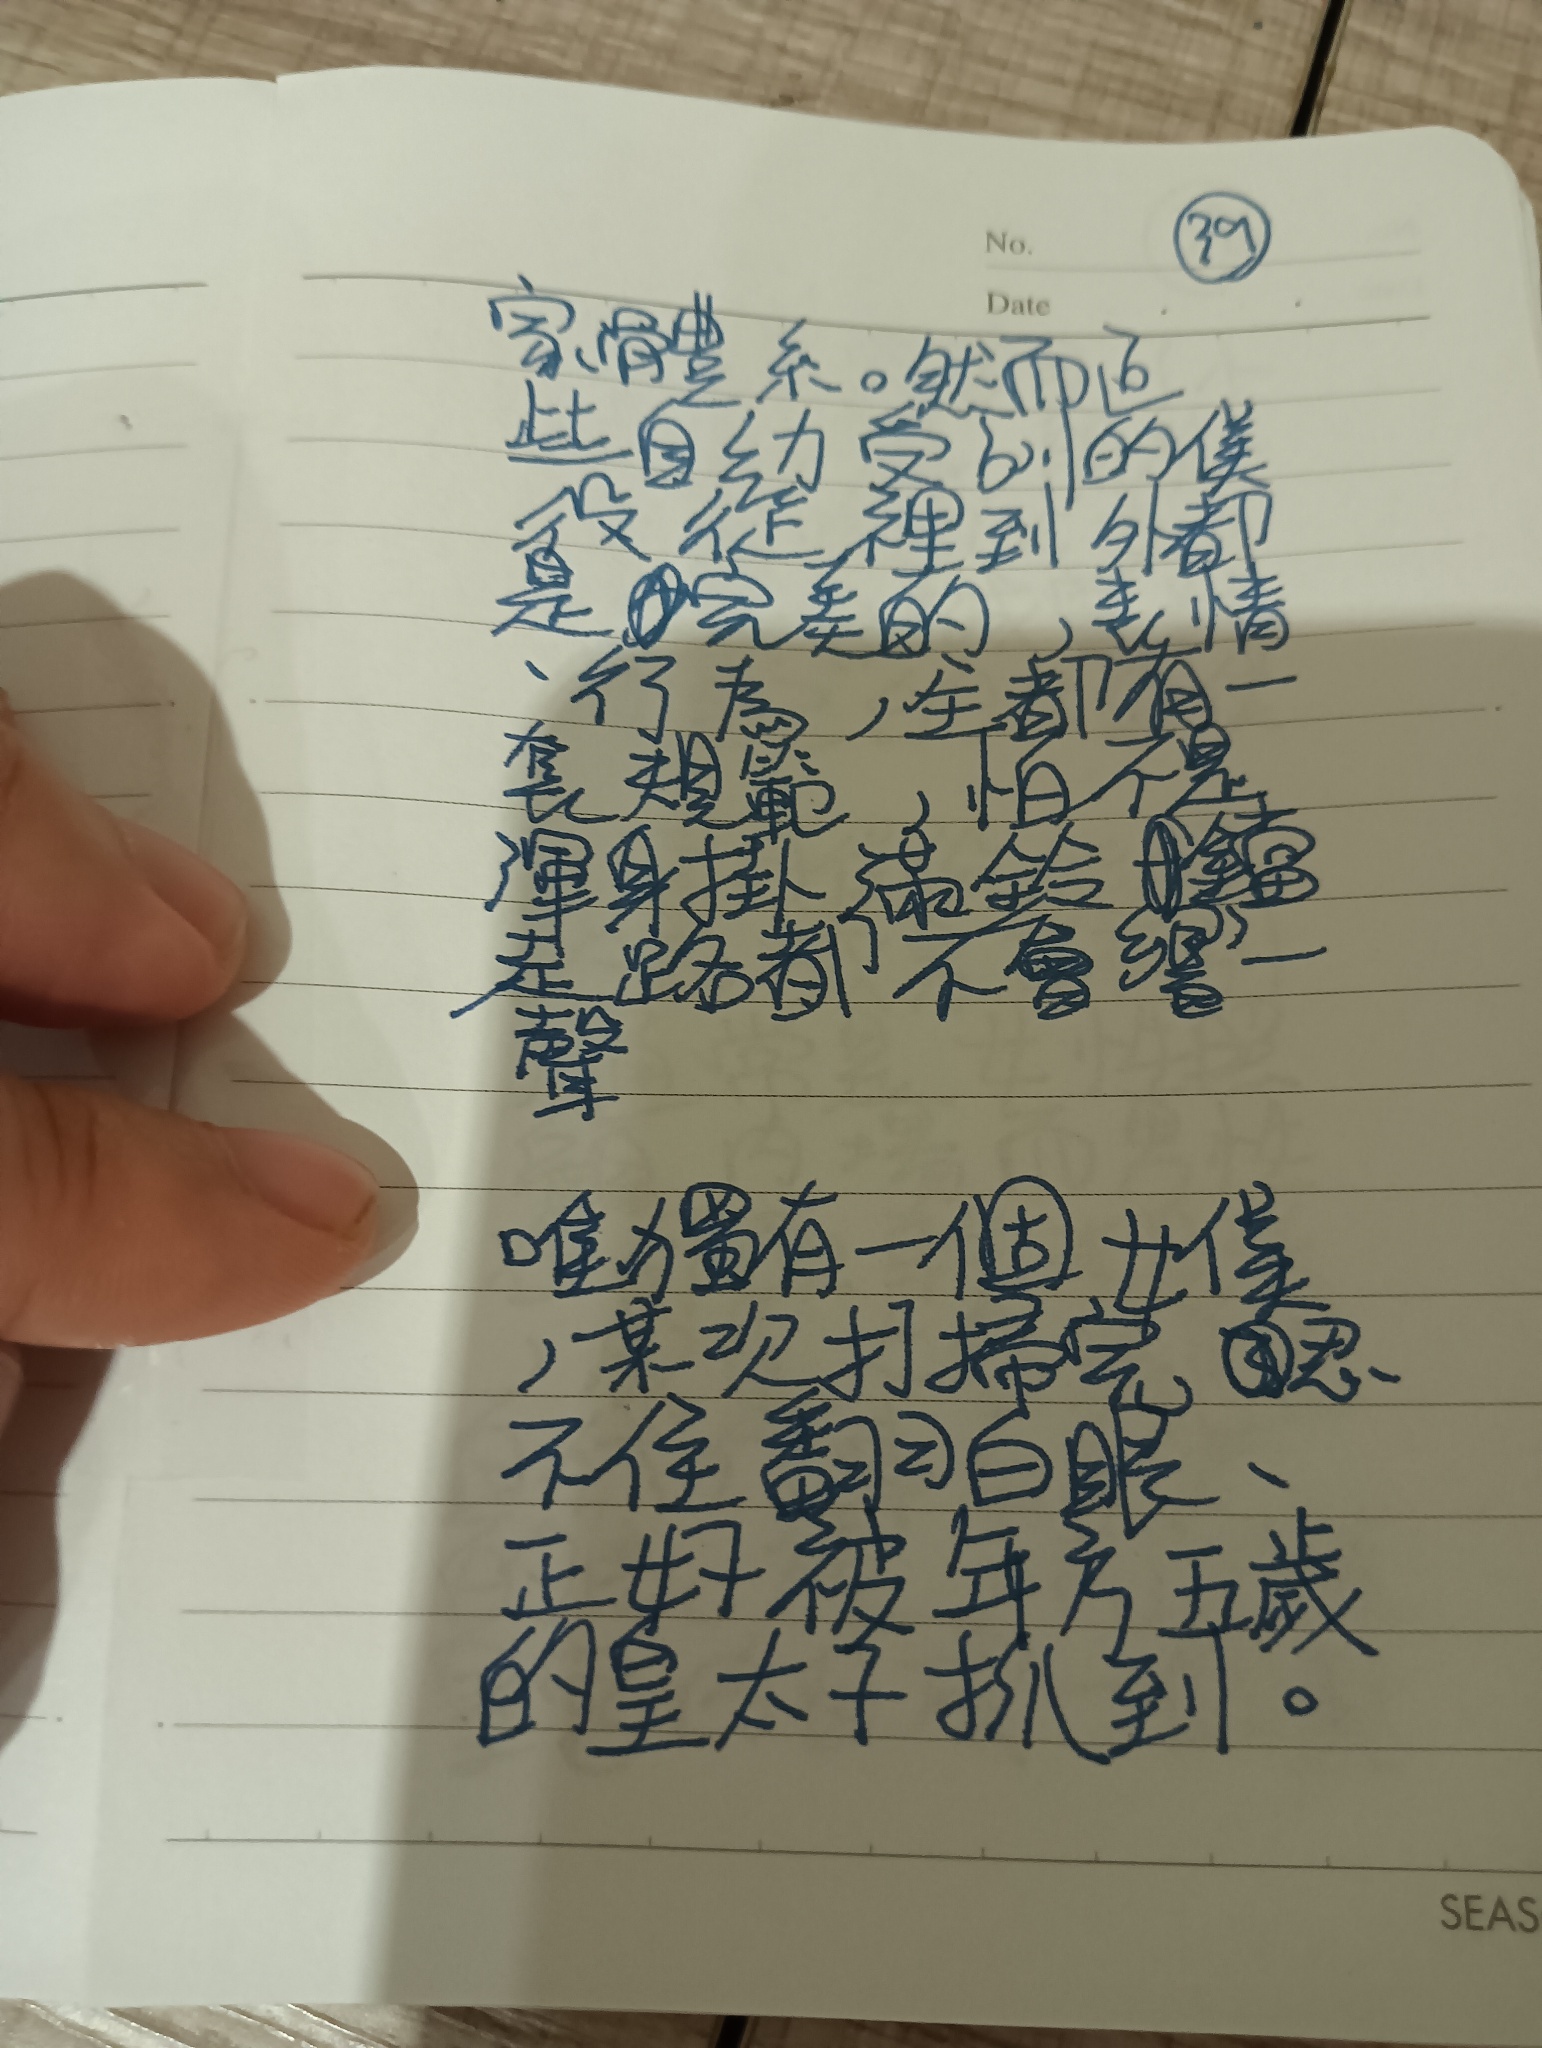 No. 39
Date
家體系。然而因
此自幼受到的僕
役從裡到外都
是完美的，表情
、行為，全都有一
套規範，怕不是
渾身掛滿鈴鐺
走路都不會響一
聲
唯獨有一個女僕
，某次打掃完忍
不住翻白眼、
正好被年方五歲
的皇太子抓到。
SEAS